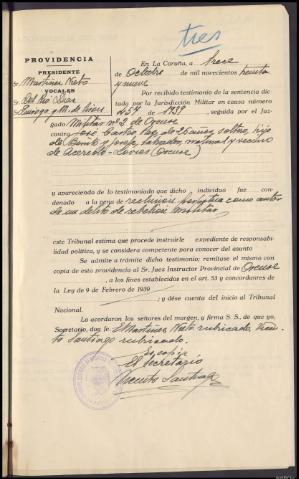 tres
PROVIDENCIA
PRESIDENTE
Martinez Nieto
VOCALES
Del Rio Diaz
En La Coruña, a trece
de Octubre de mil novecientos treinta
y nueve
Por recibido testimonio de la sentencia dic-
tada por la Jurisdicción Militar en causa número
457 de 1938, seguida por el Juz-
gado Militar nº 2 de Orense
contra José Castro
de Benito y labrador, natural y vecino
de Acevedo (Orense)
y apareciendo de lo testimoniado que dicho individuo fué con-
denado a la pena de reclusion perpetua como autor
de un delito de rebelion militar
este Tribunal estima que procede instruirle expediente de responsabi-
lidad política, y se considera competente para conocer del asunto
Se admite a trámite dicho testimonio; remítase el mismo con
copia de esta providencia al Sr. Juez Instructor Provincial de Orense
, a los fines establecidos en el art. 53 y concordantes de
la Ley de 9 de Febrero de 1939
y dése cuenta del inicio al Tribunal
Nacional.
Lo acordaron los señores del margen, y firma S. S. de que yo,
Secretario, doy fe. E. Martinez Nieto rubricado. Vicen-
te Santiago rubricado.
Es copia
El Secretario
Vicente Santiago